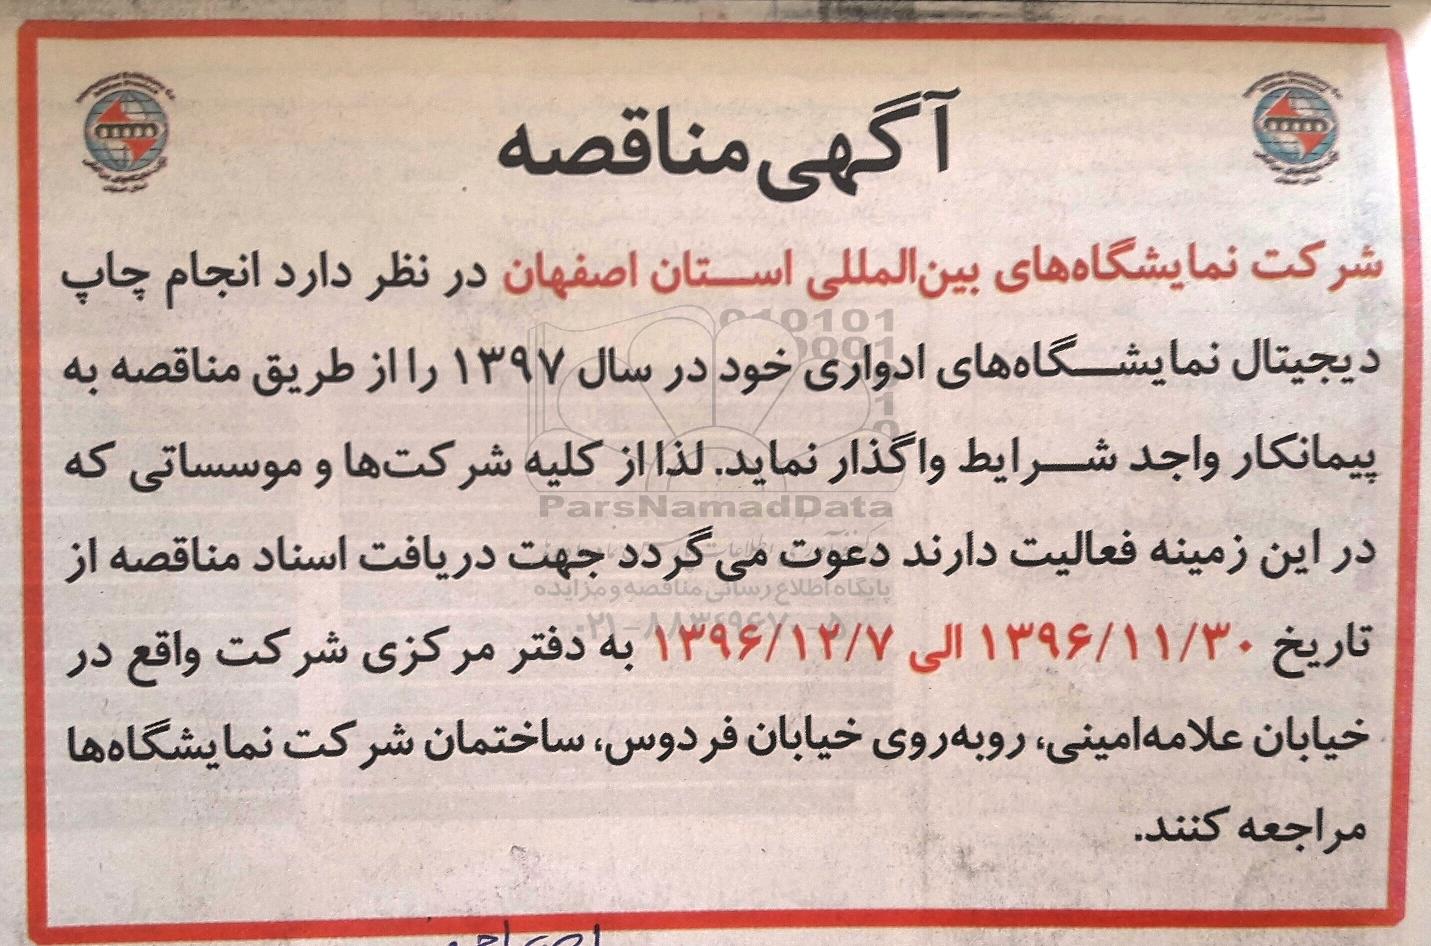 آگهی مناقصه
شرکت نمایشگاه‌های بین‌المللی استان اصفهان در نظر دارد انجام چاپ
دیجیتال نمایشگاه‌های ادواری خود در سال ۱۳۹۷ را از طریق مناقصه به
پیمانکار واجد شرایط واگذار نماید. لذا از کلیه شرکت‌ها و موسساتی که
در این زمینه فعالیت دارند دعوت می‌گردد جهت دریافت اسناد مناقصه از
تاریخ ۱۳۹۶/۱۱/۳۰ الی ۱۳۹۶/۱۲/۷ به دفتر مرکزی شرکت واقع در
خیابان علامه‌امینی، روبه‌روی خیابان فردوس، ساختمان شرکت نمایشگاه‌ها
مراجعه کنند.
ParsNamadData
پایگاه اطلاع رسانی مناقصه و مزایده